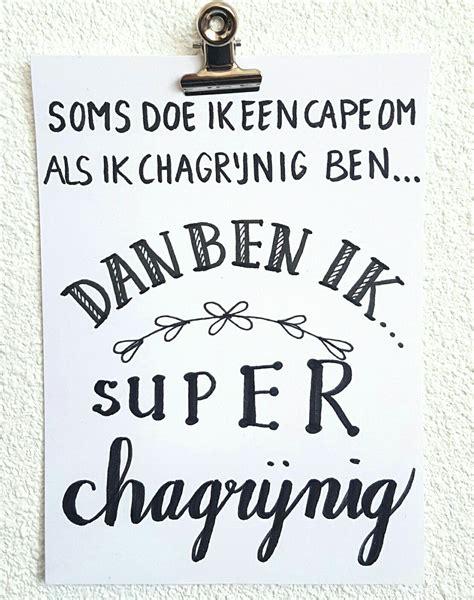 SOMS DOE IK EEN CAPE OM
ALS IK CHAGRIJNIG BEN...
DAN BEN IK...
SUPER
chagrijnig